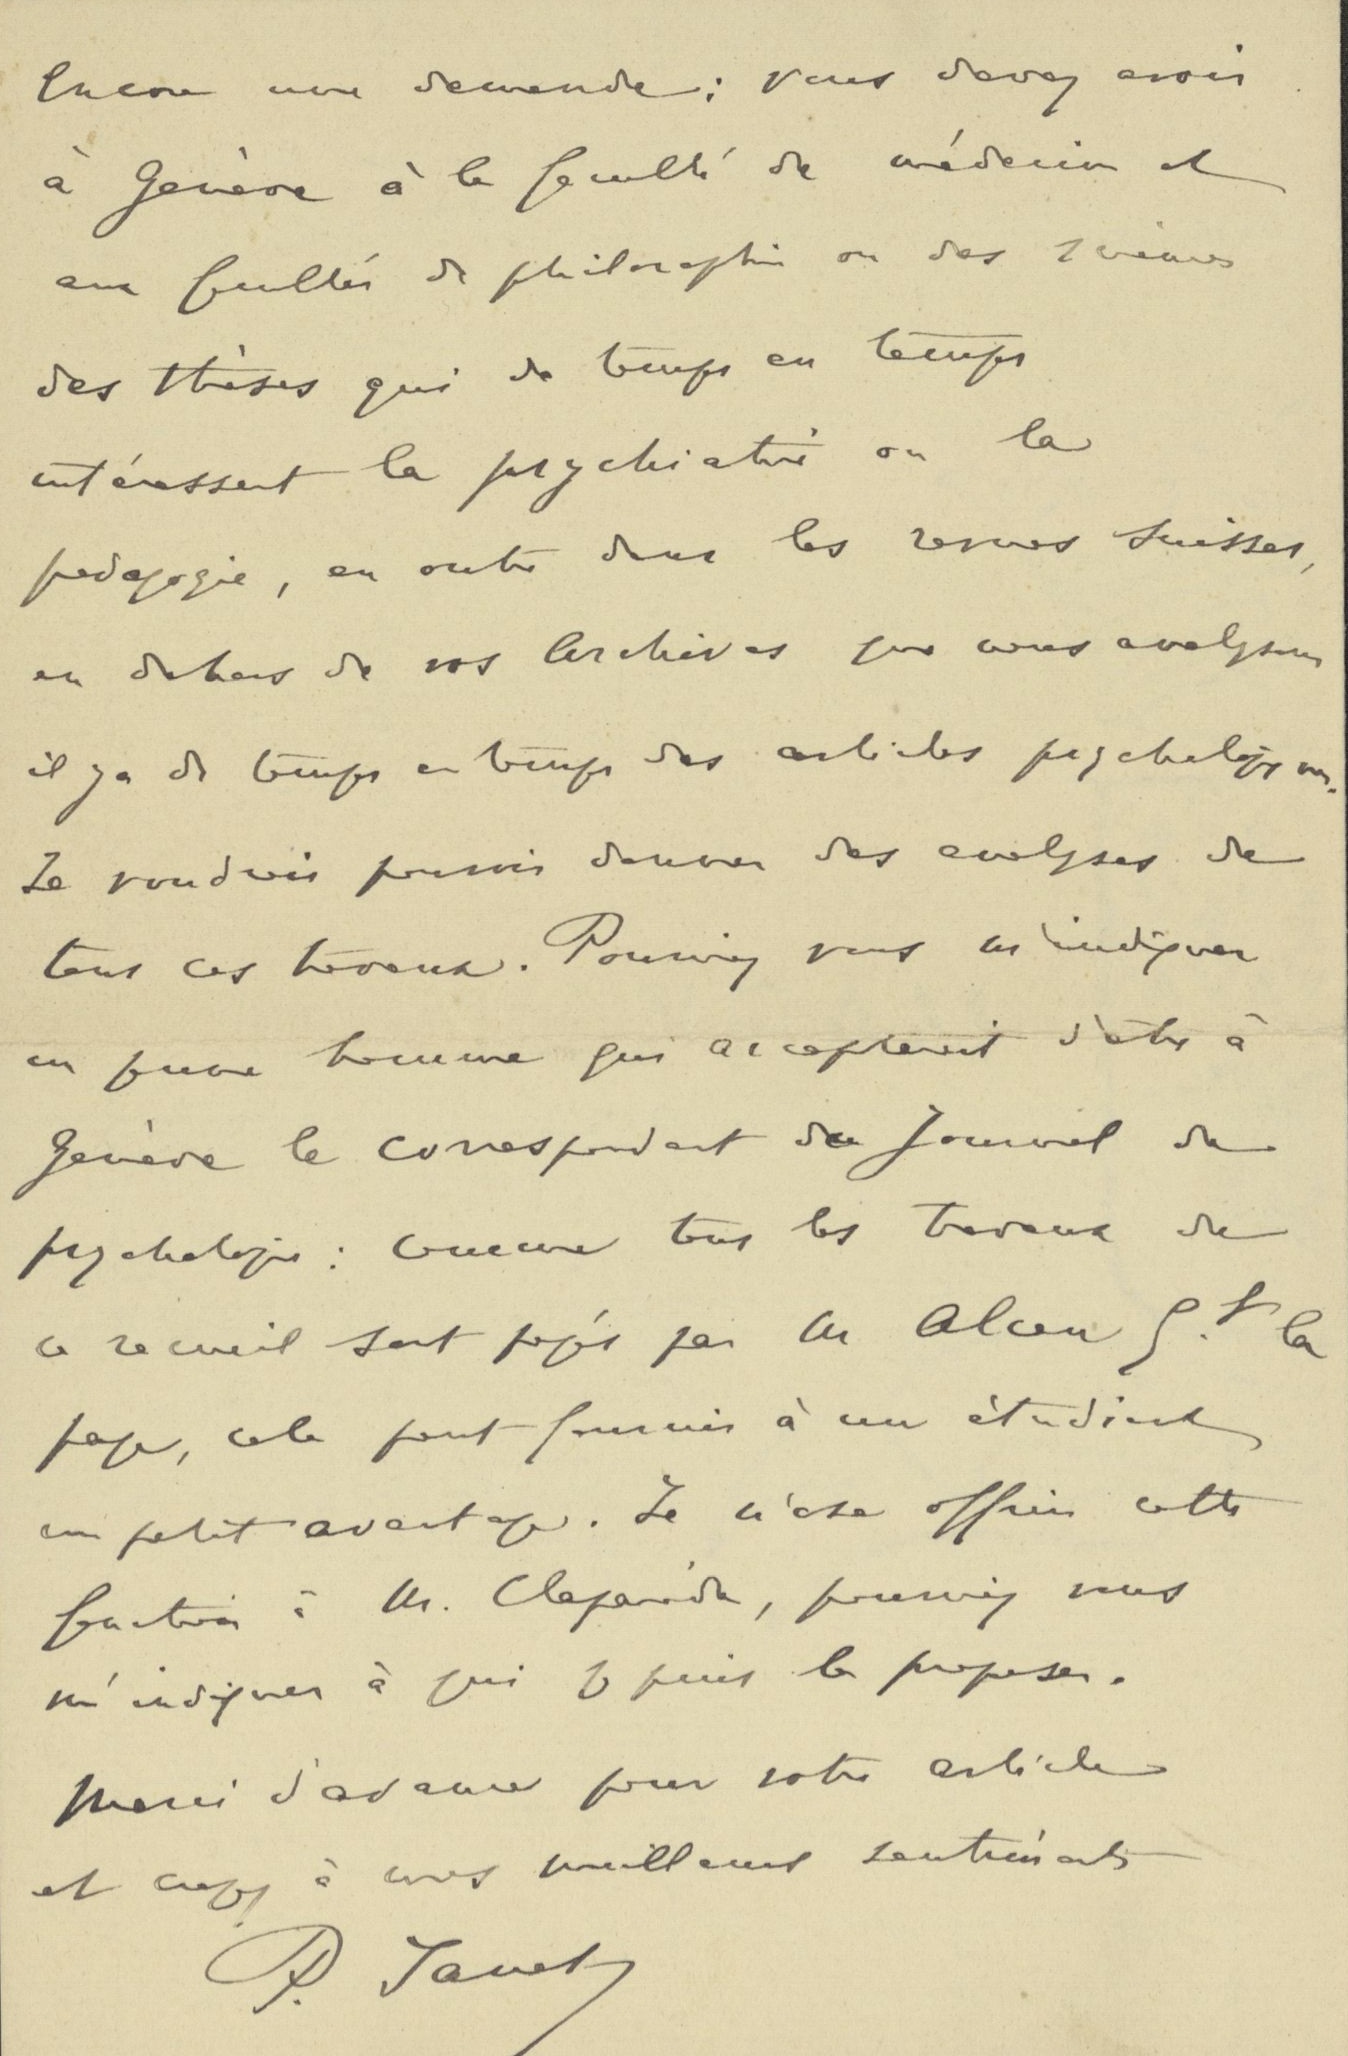 Encore une demande ; vous devez avoir
à Genève à la faculté de médecine et
aux facultés de philosophie ou des sciences
des thèses qui de temps en temps
intéressent la psychiatrie ou la
pedagogie, en outre dans les revues suisses,
en dehors de vos Archives que nous analysons
il y a de temps en temps des articles psychologiques.
Je voudrais pouvoir donner des analyses de
tous ces travaux. Pourriez vous m'indiquer
un jeune homme qui accepterait d'être à
Genève le correspondant du Journal de
psychologie : comme tous les travaux de
ce recueil sont payés par M Alcan 5.f la
page, cela peut fournir à un étudiant
un petit avantage. Je n'ose offrir cette
fonction à M. Claparède, pourriez vous
m'indiquer à qui je puis la proposer.
Merci d'avance pour votre article
et croyez à mes meilleurs sentiments
P. Janet